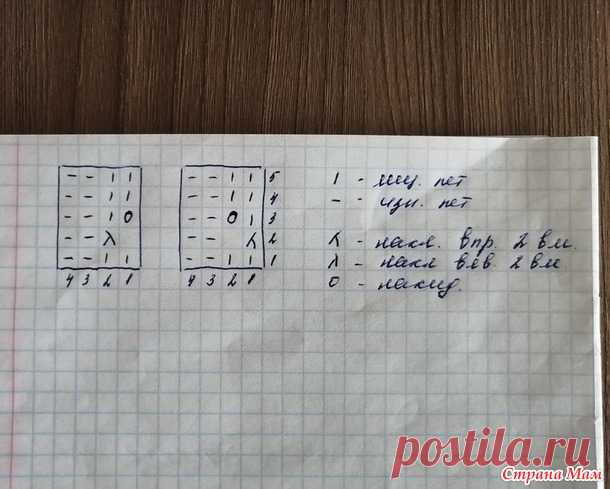 - - 1 1   - - 1 1 5   1 - лиц. пет
- - 1 1   - - 1 1 4   - - изн. пет
- - 1 0   - - 0 1 3
- - λ   - - ʎ 2   ʎ - накл. впр. 2 вм.
- - 1 1   - - 1 1 1   λ - накл влв. 2 вм
4 3 2 1   4 3 2 1   0 - накид.
postila.ru
Страна Мам